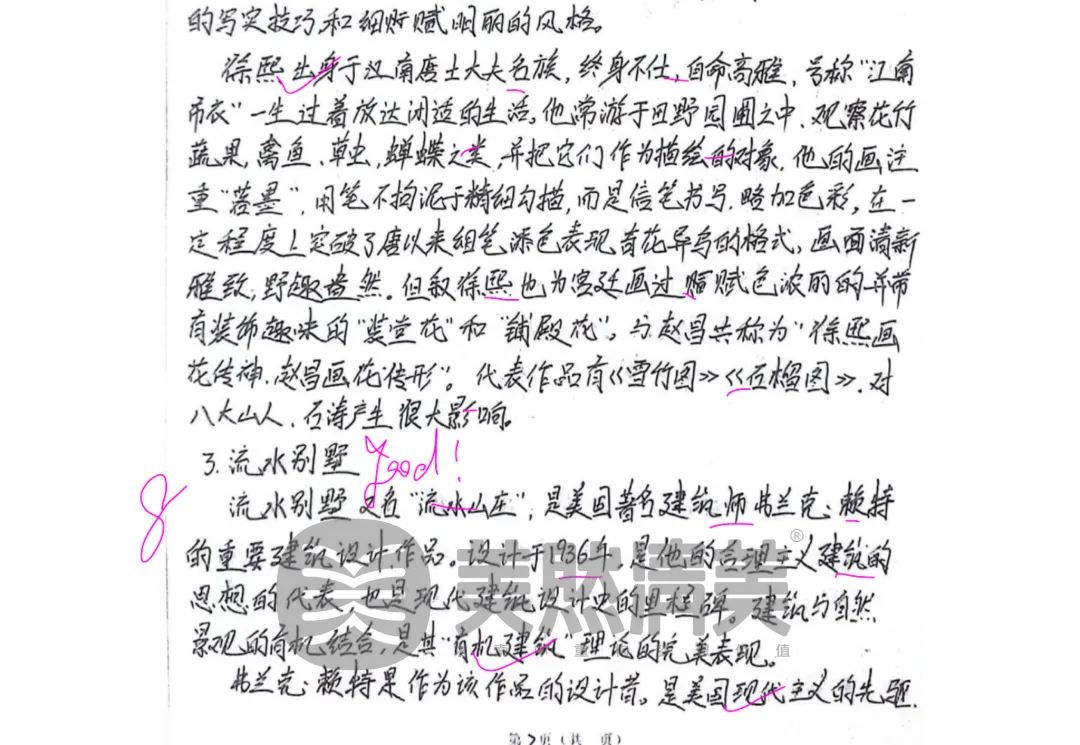 的写实技巧,和细贮赋明丽的风格。
徐熙出身于江南唐士大夫名族,终身不仕,自命高雅,号称“江南
布衣”一生过着放达闭适的生活。他常游于田野园圃之中、观察花竹
蔬果,禽鱼、草虫,蝉蝶之类,并把它们作为描绘的对象,他的画注
重“落墨”,用笔不拘泥于精细勾描,而是信笔书写、略加色彩,在一
定程度上突破了唐以来细笔添色表现奇花异鸟的格式,画面清新
雅致,野趣盎然。但叙徐熙也为宫廷画过 赋色浓丽的并带
有装饰趣味的“装堂花”和“铺殿花”。与赵昌共称为“徐熙画
花传神、赵昌画花传形”。代表作品有《雪竹图》《石榴图》、对
八大山人、石涛产生很大影响。
8
3.流水别墅 good!
流水别墅又名“流水山庄”,是美国著名建筑师弗兰克·赖特
的重要建筑设计作品。设计于1936年,是他的合理主义建筑的
思想的代表,也是现代建筑设计史的里程碑。建筑与自然
景观的有机结合,是其“有机建筑”理论的完美表现。
弗兰克·赖特是作为该作品的设计者。是美国现代主义的先驱.
美然清美®
值
第2页(共 页)